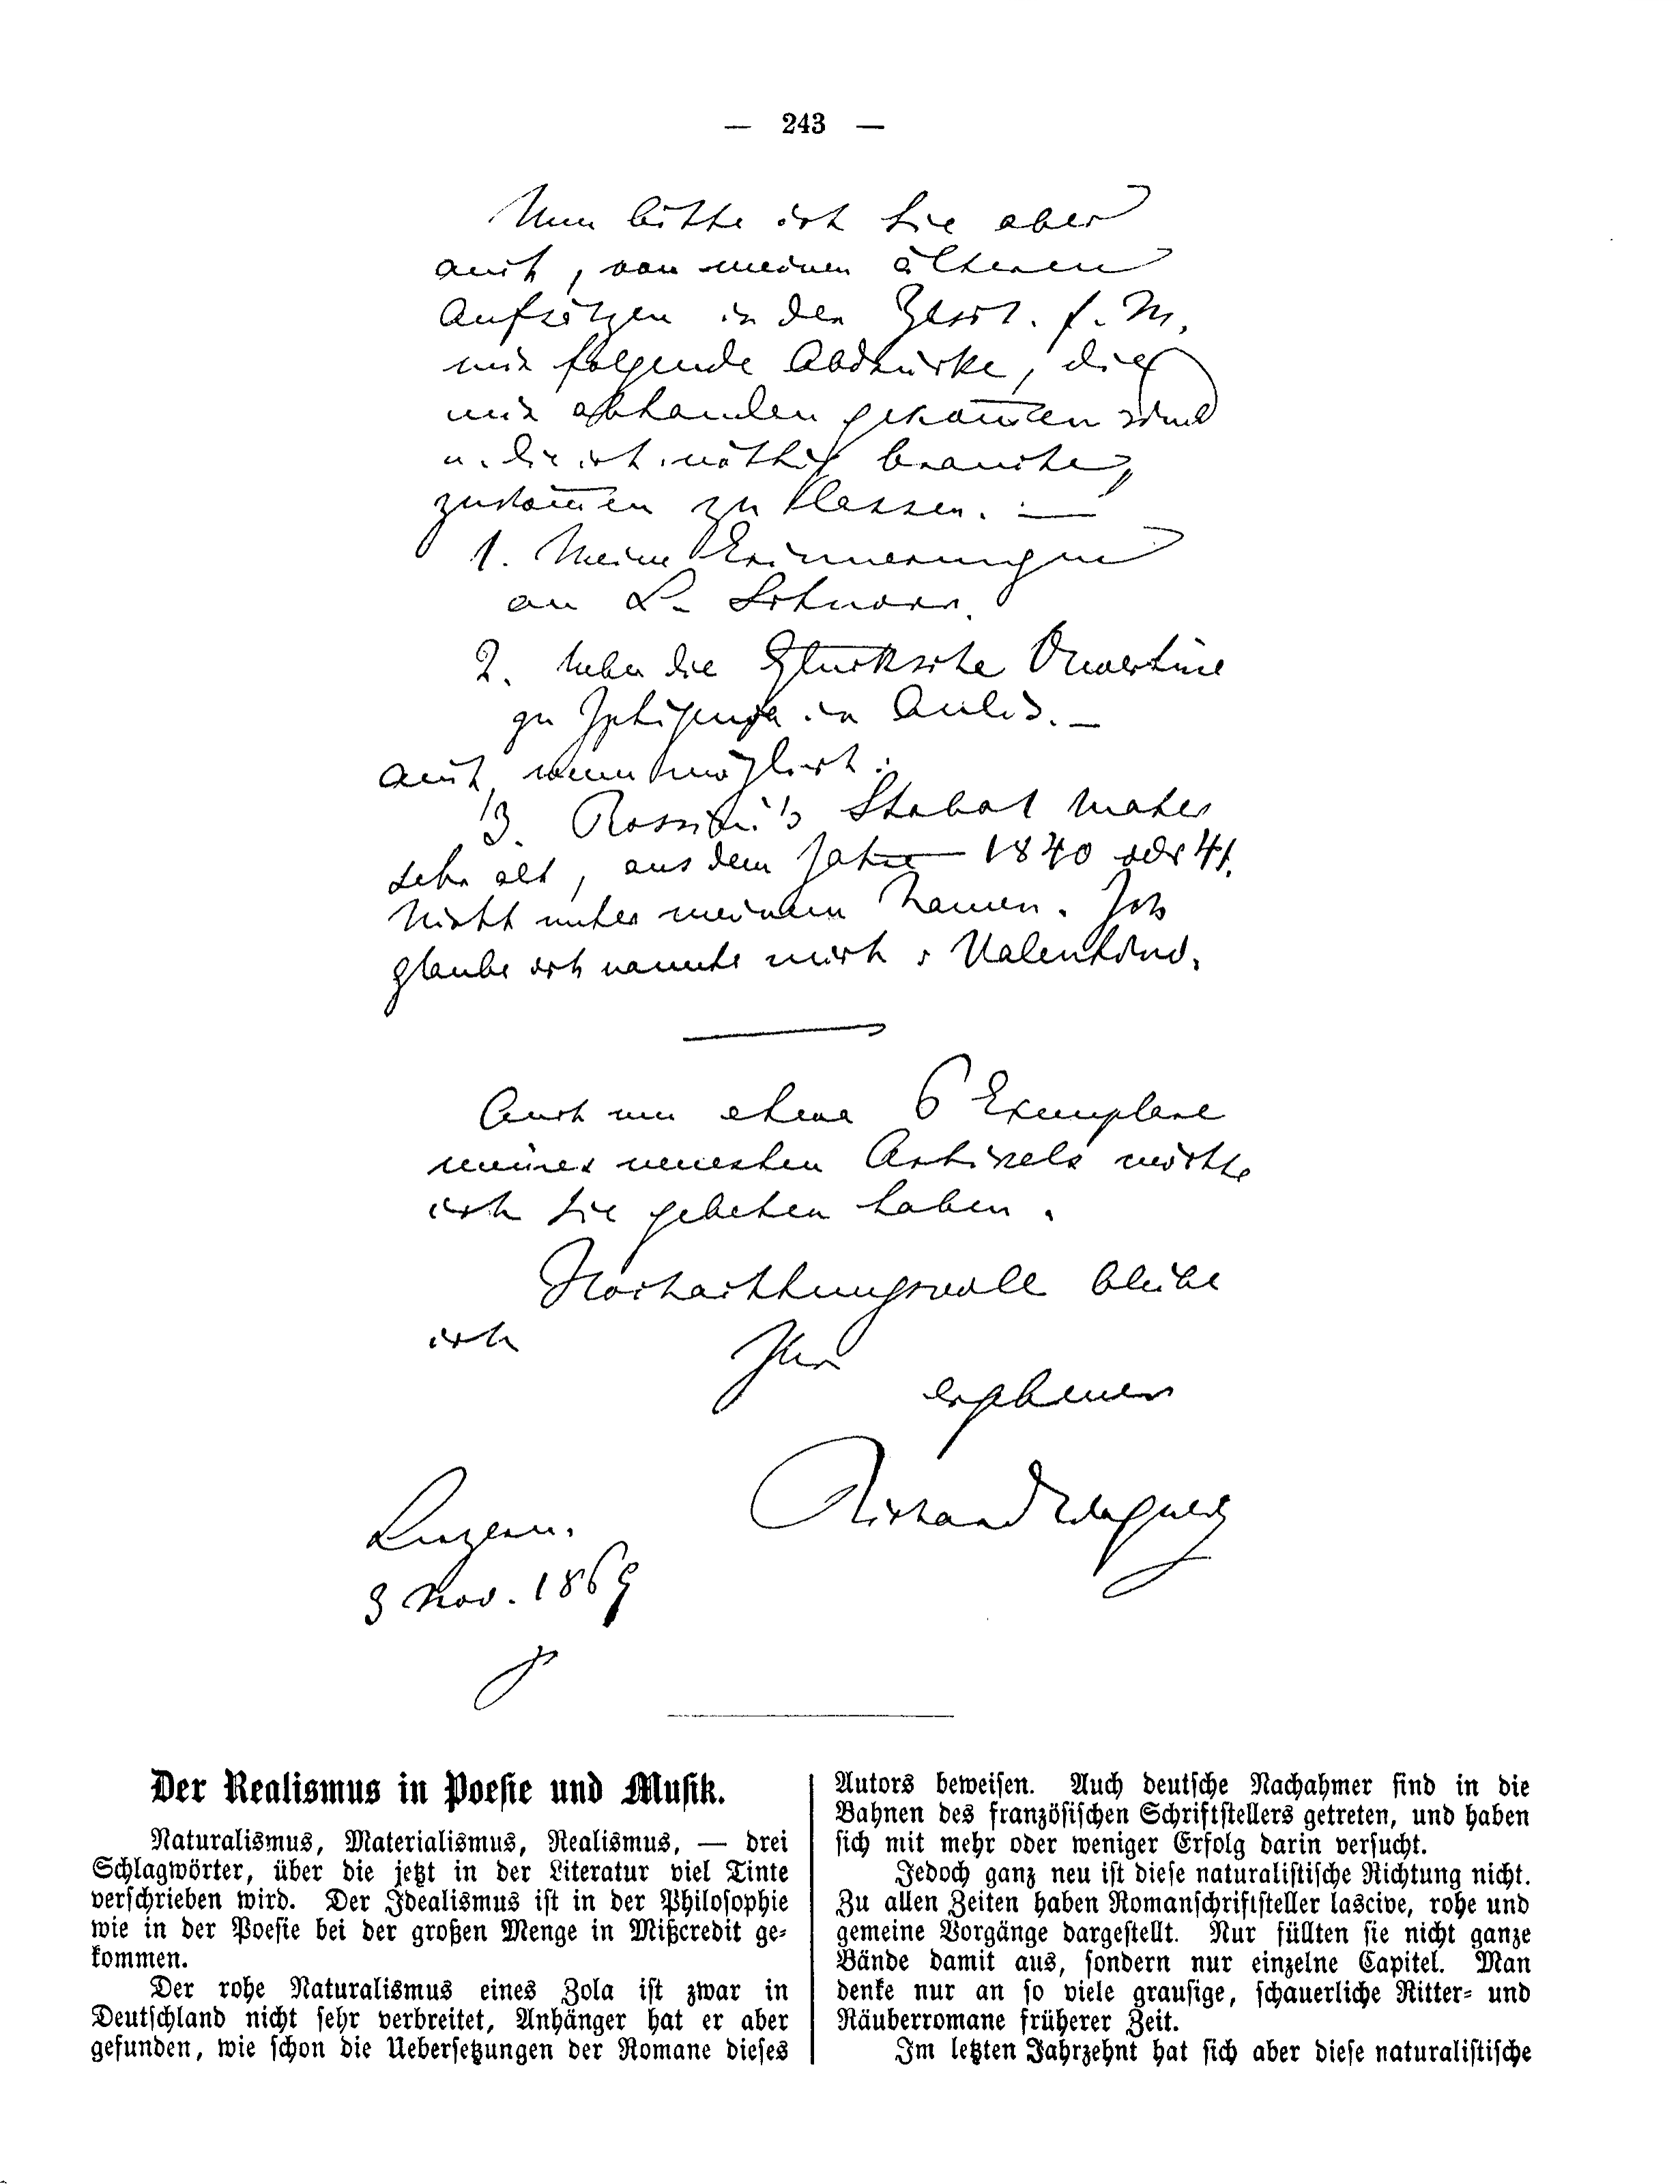 — 243 —
Nun bitte ich Sie aber
auch, von meinen älteren
Aufsätzen in der Ztschr. f. M.
mir folgende Abdrücke, die
mir abhanden gekom̄en sind
u. die ich nöthig brauche,
zukom̄en zu lassen. —
1. Meine Erinnerungen
an L. Schnorr.
2. Ueber die Glucksche Ouvertüre
zu Iphigenia in Aulis. —
auch, wenn möglich:
3. Rossini's Stabat mater
sehr alt, aus dem Jahre 1840 oder 41.
Nicht unter meinem Namen. Ich
glaube ich nannte mich: Valentino.
Auch um etwa 6 Exemplare
meines neuesten Artikels möchte
ich Sie gebeten haben.
Hochachtungsvoll bleibe
ich Ihr
ergebener
Richard Wagner
Luzern.
3 Nov. 1869
Der Realismus in Poesie und Musik.
Naturalismus, Materialismus, Realismus, — drei
Schlagwörter, über die jetzt in der Literatur viel Tinte
verschrieben wird. Der Idealismus ist in der Philosophie
wie in der Poesie bei der großen Menge in Mißcredit ge-
kommen.
Der rohe Naturalismus eines Zola ist zwar in
Deutschland nicht sehr verbreitet, Anhänger hat er aber
gefunden, wie schon die Uebersetzungen der Romane dieses
Autors beweisen. Auch deutsche Nachahmer sind in die
Bahnen des französischen Schriftstellers getreten, und haben
sich mit mehr oder weniger Erfolg darin versucht.
Jedoch ganz neu ist diese naturalistische Richtung nicht.
Zu allen Zeiten haben Romanschriftsteller lascive, rohe und
gemeine Vorgänge dargestellt. Nur füllten sie nicht ganze
Bände damit aus, sondern nur einzelne Capitel. Man
denke nur an so viele grausige, schauerliche Ritter- und
Räuberromane früherer Zeit.
Im letzten Jahrzehnt hat sich aber diese naturalistische